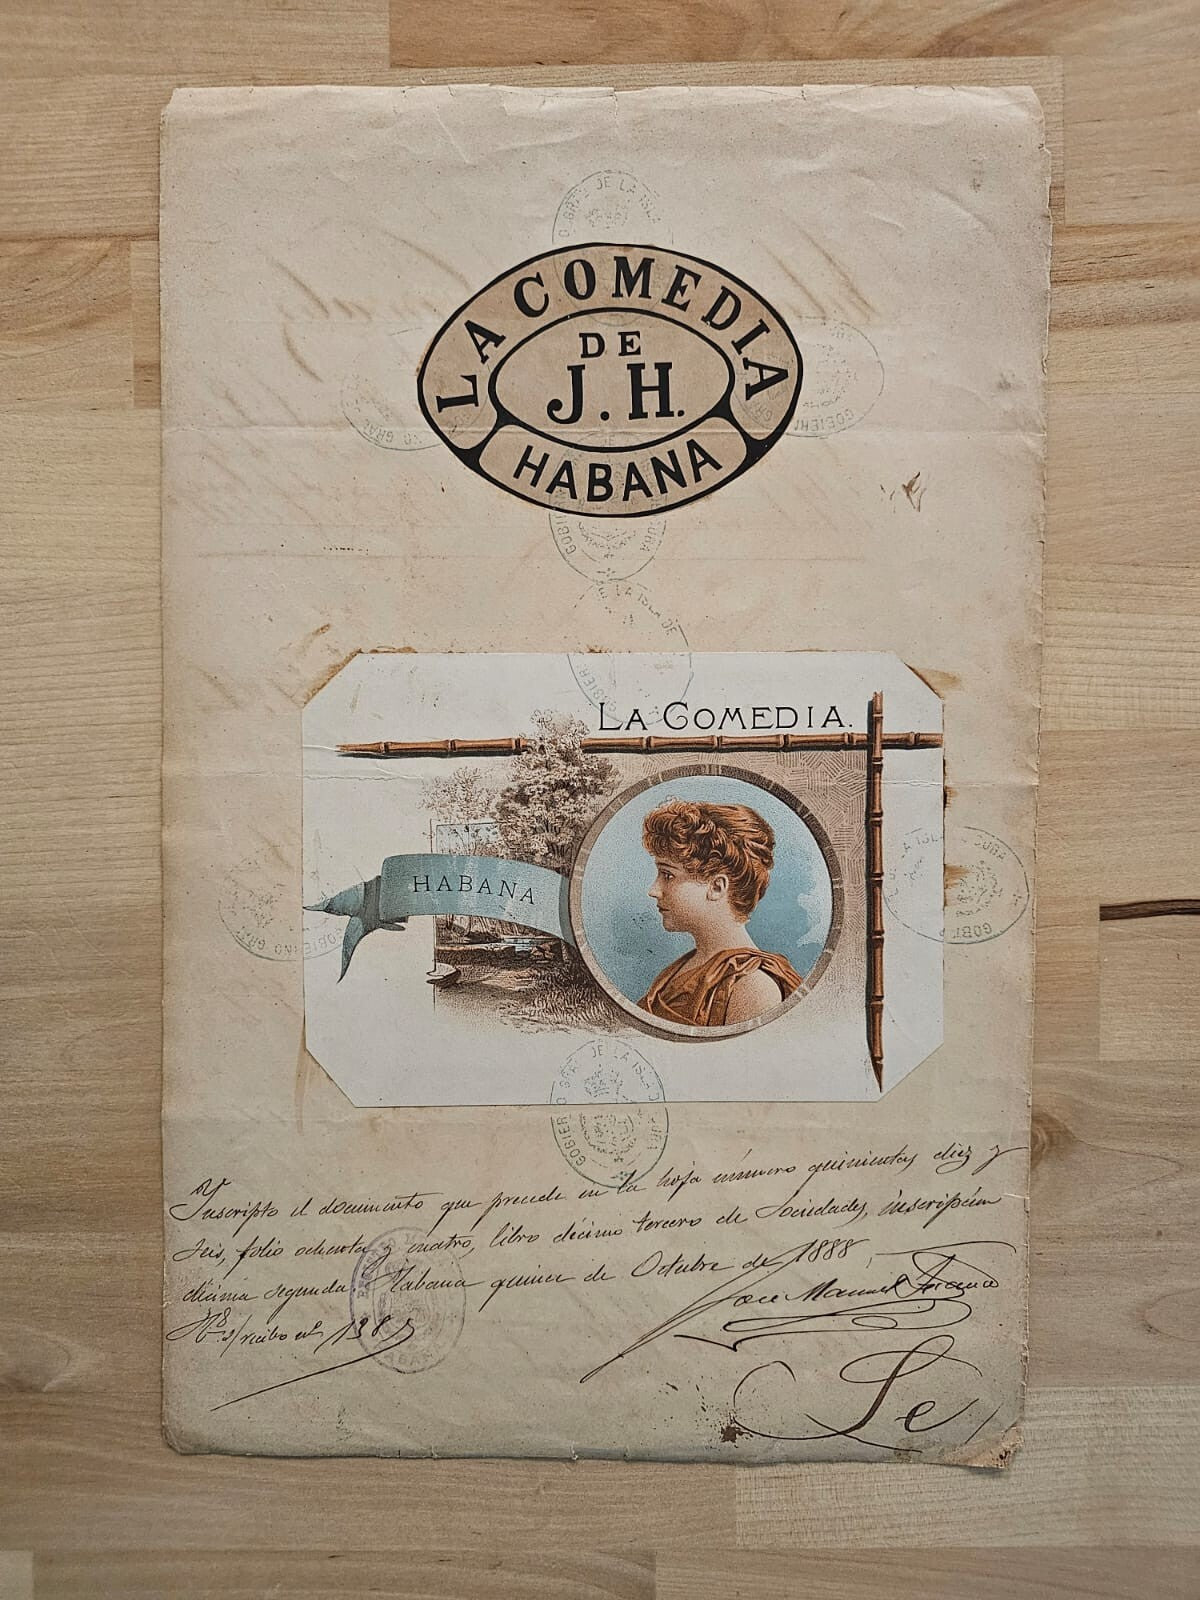 LA COMEDIA
DE
J. H.
HABANA
LA COMEDIA.
HABANA
GOBIERNO GRAL DE LA ISLA DE CUBA
Inscripto el documento que precede en la hoja número quinientas diez y
seis, folio ochenta y cuatro, libro décimo tercero de Sociedades, inscripción
décima segunda. Habana quince de Octubre de 1888.
José Manuel
recibo
HABANA